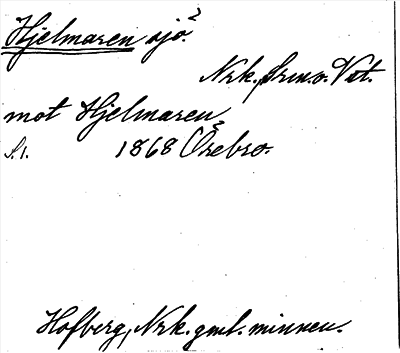 Hjelmaren sjö.2
Nrk, Srm. o. Vst.
mot Hjelmaren,
S. 1. 1868 Örebro.
Hofberg, Nrk. gml. minnen.